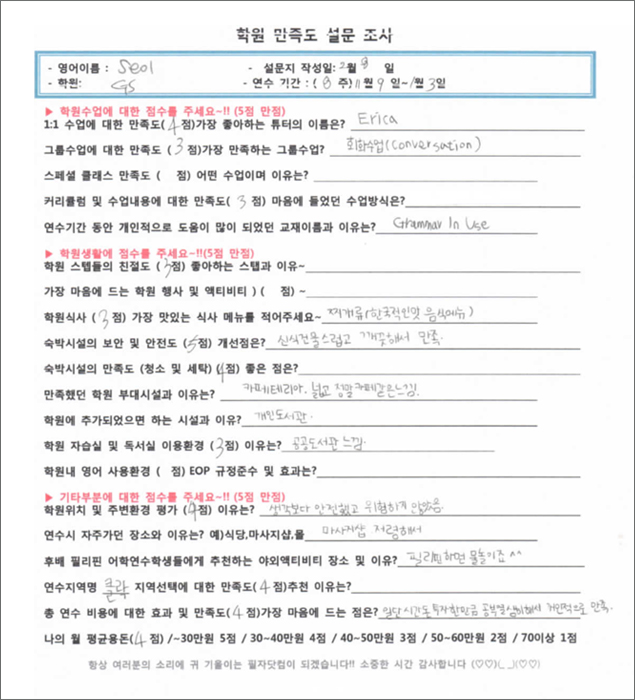 학원 만족도 설문 조사
- 영어이름 : Seol - 설문지 작성일: 2월 8 일
- 학원: GS - 연수 기간 : ( 8 주) 11월 9 일~ 1월 3일
▶ 학원수업에 대한 점수를 주세요~!! (5점 만점)
1:1 수업에 대한 만족도( 4 점)가장 좋아하는 튜터의 이름은? Erica
그룹수업에 대한 만족도 ( 3 점)가장 만족하는 그룹수업? 회화수업(Conversation)
스페셜 클래스 만족도 ( 점) 어떤 수업이며 이유는?
커리큘럼 및 수업내용에 대한 만족도( 3 점) 마음에 들었던 수업방식은?
연수기간 동안 개인적으로 도움이 많이 되었던 교재이름과 이유는? Grammar In Use
▶ 학원생활에 점수를 주세요~!!(5점 만점)
학원 스텝들의 친절도 ( 3점) 좋아하는 스탭과 이유~
가장 마음에 드는 학원 행사 및 액티비티 ) ( 점) ~
학원식사 ( 3 점) 가장 맛있는 식사 메뉴를 적어주세요~ 찌개류(한국적인맛 음식메뉴)
숙박시설의 보안 및 안전도 ( 5 점) 개선점은? 신식건물스럽고 깨끗해서 만족.
숙박시설의 만족도 (청소 및 세탁) ( 4 점) 좋은 점은?
만족했던 학원 부대시설과 이유는? 카페테리아. 넓고 정말 카페같은느낌.
학원에 추가되었으면 하는 시설과 이유? 개인도서관.
학원 자습실 및 독서실 이용환경 ( 3점) 이유는? 공공도서관 느낌.
학원내 영어 사용환경 ( 점) EOP 규정준수 및 효과는?
▶ 기타부분에 대한 점수를 주세요~!! (5점 만점)
학원위치 및 주변환경 평가 ( 4점) 이유는? 생각보다 안전했고 위험하지 않았음.
연수시 자주가던 장소와 이유는? 예)식당,마사지샵,몰 마사지샵 저렴해서
후배 필리핀 어학연수학생들에게 추천하는 야외액티비티 장소 및 이유? 필리핀하면 물놀이죠 ^^
연수지역명 클락 지역선택에 대한 만족도( 4 점)추천 이유는?
총 연수 비용에 대한 효과 및 만족도( 4 점)가장 마음에 드는 점은? 일단 시간돈 투자한만큼 공부열심히해서 개인적으로 만족.
나의 월 평균용돈( 4 점) /~30만원 5점 / 30~40만원 4점 / 40~50만원 3점 / 50~60만원 2점 / 70이상 1점
항상 여러분의 소리에 귀 기울이는 필자닷컴이 되겠습니다!! 소중한 시간 감사합니다 (♡♡)(_ _)(♡♡)